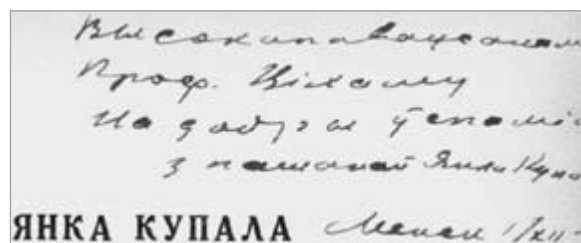 Высокапаважаном
Проф. Ціхаму
На добры ўспамін
з пашанай Янка Купа
ЯНКА КУПАЛА Менск 1/XII